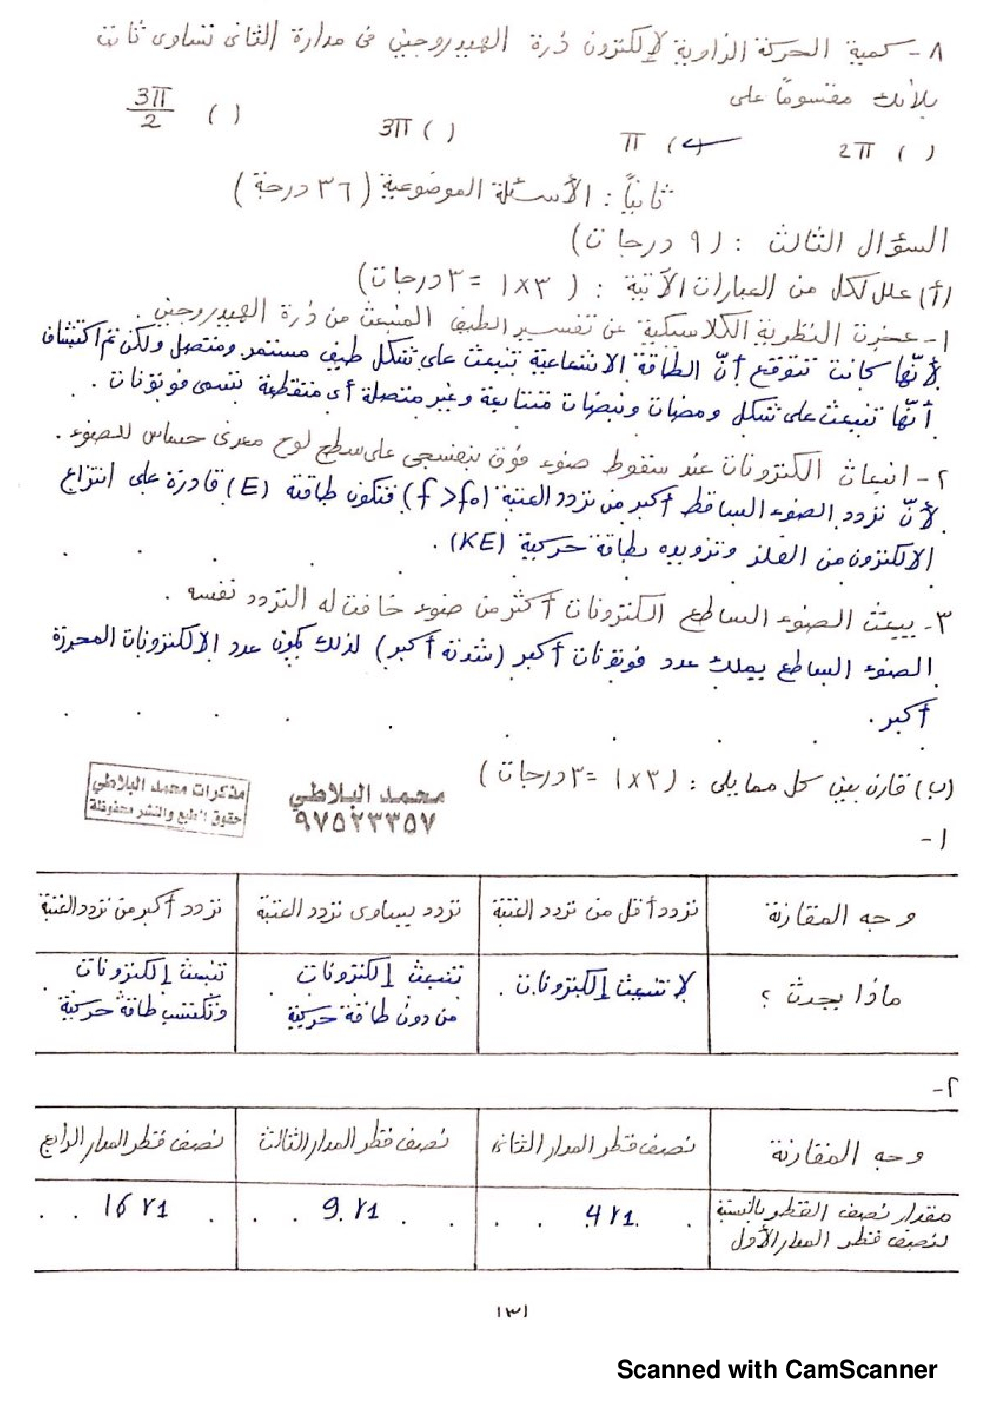 ٨- كمية الحركة الزاوية لإلكترون ذرة الهيدروجين في مداره الثاني تساوي ثابت
بلانك مقسومًا على
( ) 2π (✓) π ( ) 3π ( ) 3π/2
ثانيًا : الأسئلة الموضوعية (٣٦ درجة)
السؤال الثالث : (٩ درجات)
(أ) علل لكل من العبارات الآتية : (٣×١ = ٣ درجات)
١- عجزت النظرية الكلاسيكية عن تفسير الطيف المنبعث من ذرة الهيدروجين .
لأنّها كانت تتوقع أنّ الطاقة الاشعاعية تنبعث على شكل طيف مستمر ومتصل ولكن تم اكتشاف
أنّها تنبعث على شكل ومضات ونبضات متتابعة وغير متصلة أي متقطعة تسمى فوتونات .
٢- انبعاث الكترونات عند سقوط ضوء فوق بنفسجي على سطح لوح معدني حساس للضوء .
لأنّ تردد الضوء الساقط أكبر من تردد العتبة (f > f₀) فتكون طاقته (E) قادرة على انتزاع
الالكترون من الفلز وتزويده بطاقة حركية (KE) .
٣- يبعث الضوء الساطع الكترونات أكثر من ضوء خافت له التردد نفسه .
الضوء الساطع يملك عدد فوتونات أكبر (شدته أكبر) لذلك يكون عدد الالكترونات المحررة
أكبر .
(ب) قارن بين كل مما يلي : (٣×١ = ٣ درجات)
مذكرات محمد البلاطي
حقوق الطبع والنشر محفوظة
محمد البلاطي
٩٧٥٢٣٣٥٧
١-
وجه المقارنة تردد أقل من تردد العتبة تردد يساوي تردد العتبة تردد أكبر من تردد العتبة
ماذا يحدث ؟ لا تنبعث إلكترونات . تنبعث إلكترونات تنبعث إلكترونات
من دون طاقة حركية وتكتسب طاقة حركية
٢-
وجه المقارنة نصف قطر المدار الثاني نصف قطر المدار الثالث نصف قطر المدار الرابع
مقدار نصف القطر بالنسبة 4r1 9r1 16r1
لنصف قطر المدار الأول
١٣١
Scanned with CamScanner